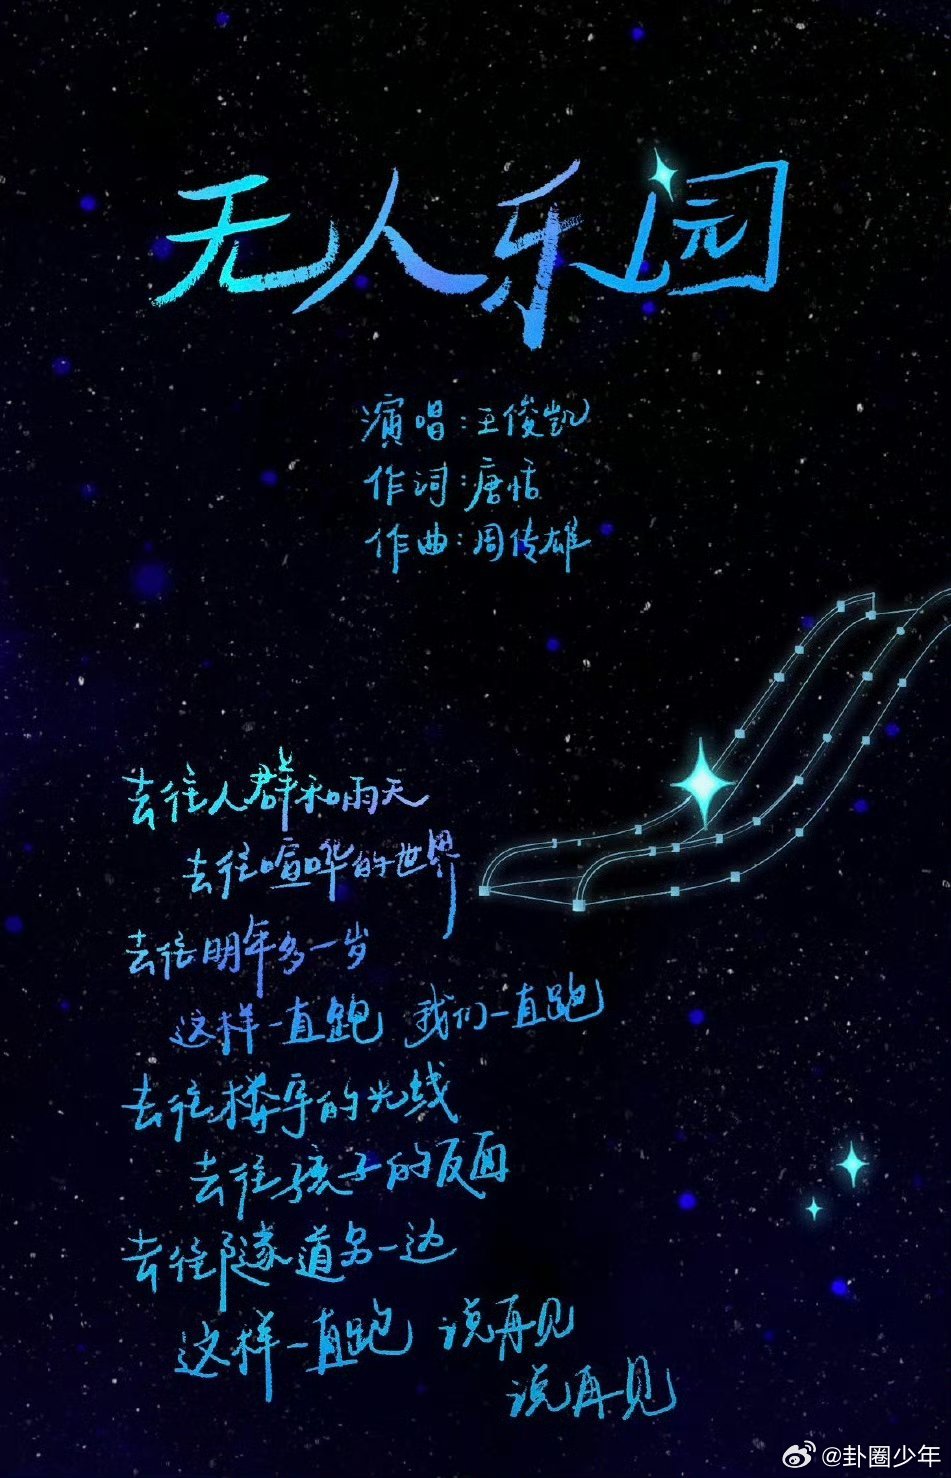 无人乐园
演唱:王俊凯
作词:唐恬
作曲:周传雄
去往人群和雨天
去往喧哗的世界
去往明年多一岁
这样一直跑 我们一直跑
去往楼房的光线
去往孩子的反面
去往隧道另一边
这样一直跑 说再见
说再见
@卦圈少年